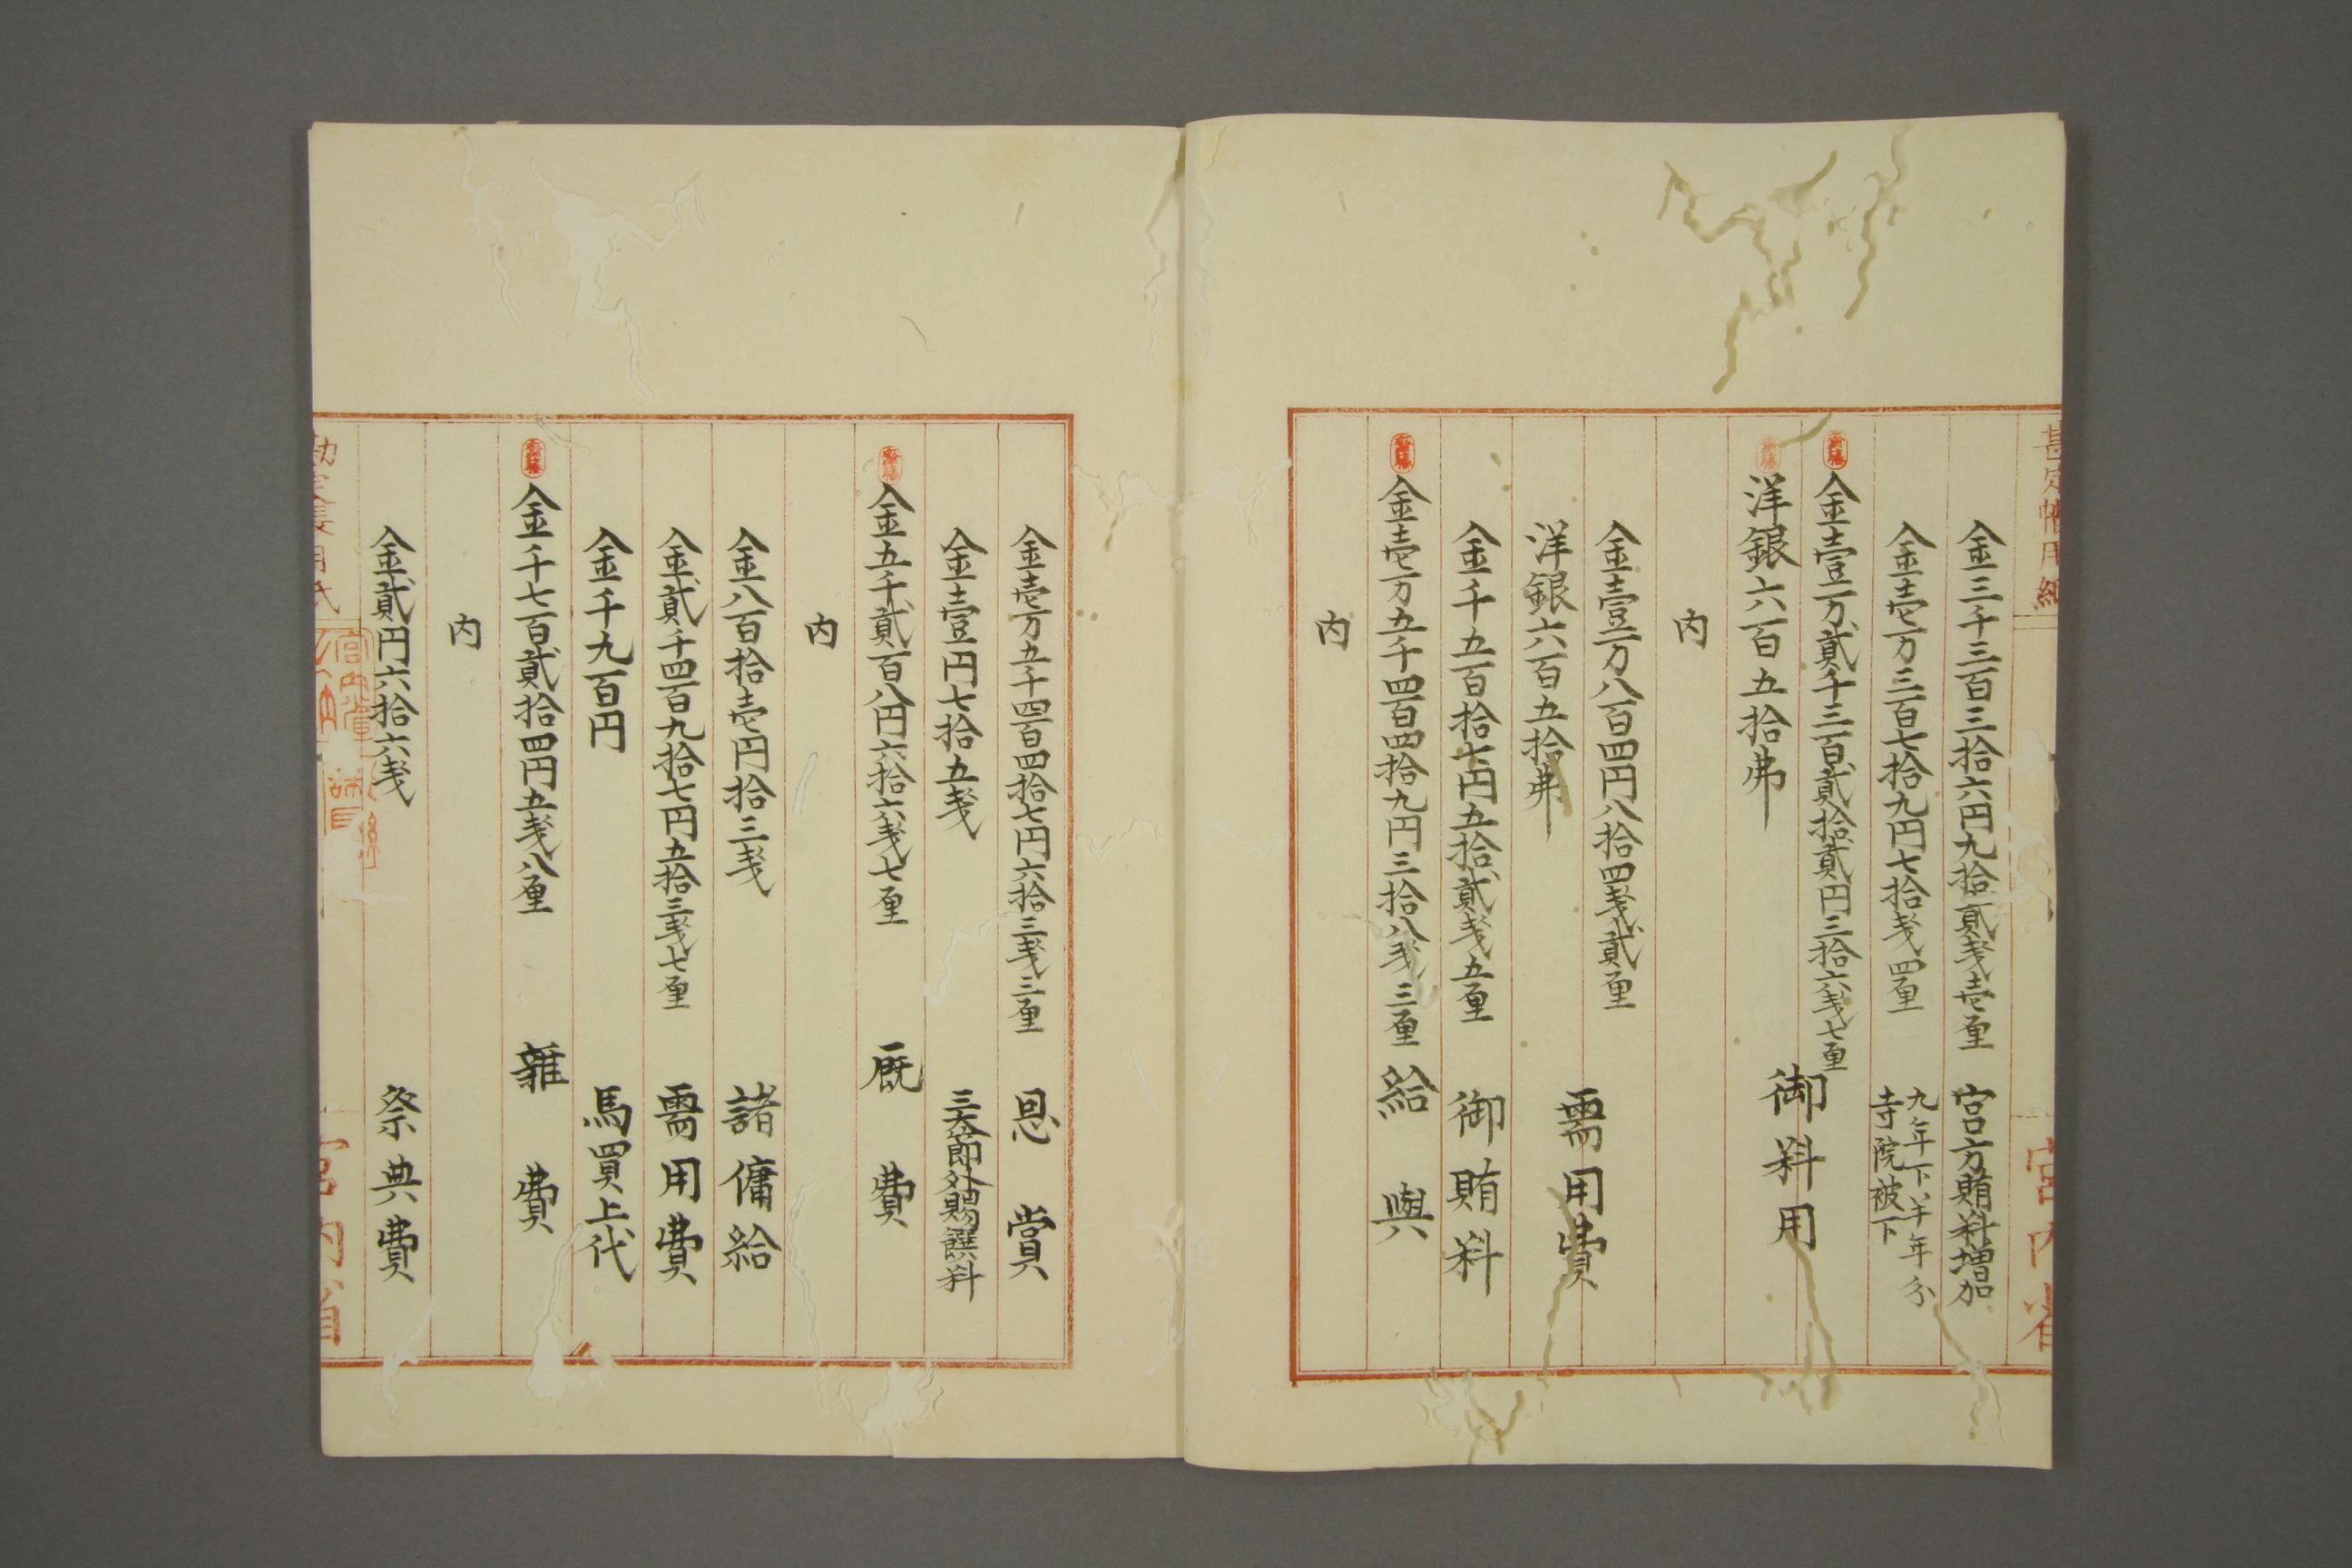 金三千三百三拾六円九拾貳戔壱厘 宮方賄料増加
金壱万三百七拾九円七拾戔四厘 九年下半年分
寺院被下
金壹万貳千三百貳拾貳円三拾六戔七厘
洋銀六百五拾弗
御料用
内
金壹万八百四円八拾四戔貳厘
洋銀六百五拾弗
需用費
金千五百拾七円五拾貳戔五厘 御賄料
金壱万五千四百四拾九円三拾八戔三厘 給與
内
金壱万五千四百四拾七円六拾三戔三厘 恩賞
金壹円七拾五戔 三大節外賜饌料
金五千貳百八円六拾六戔七厘 厩費
内
金八百拾壱円拾三戔 諸傭給
金貳千四百九拾七円五拾三戔七厘 需用費
金千九百円 馬買上代
金千七百貳拾四円五戔八厘 雜費
内
金貳円六拾六戔 祭典費